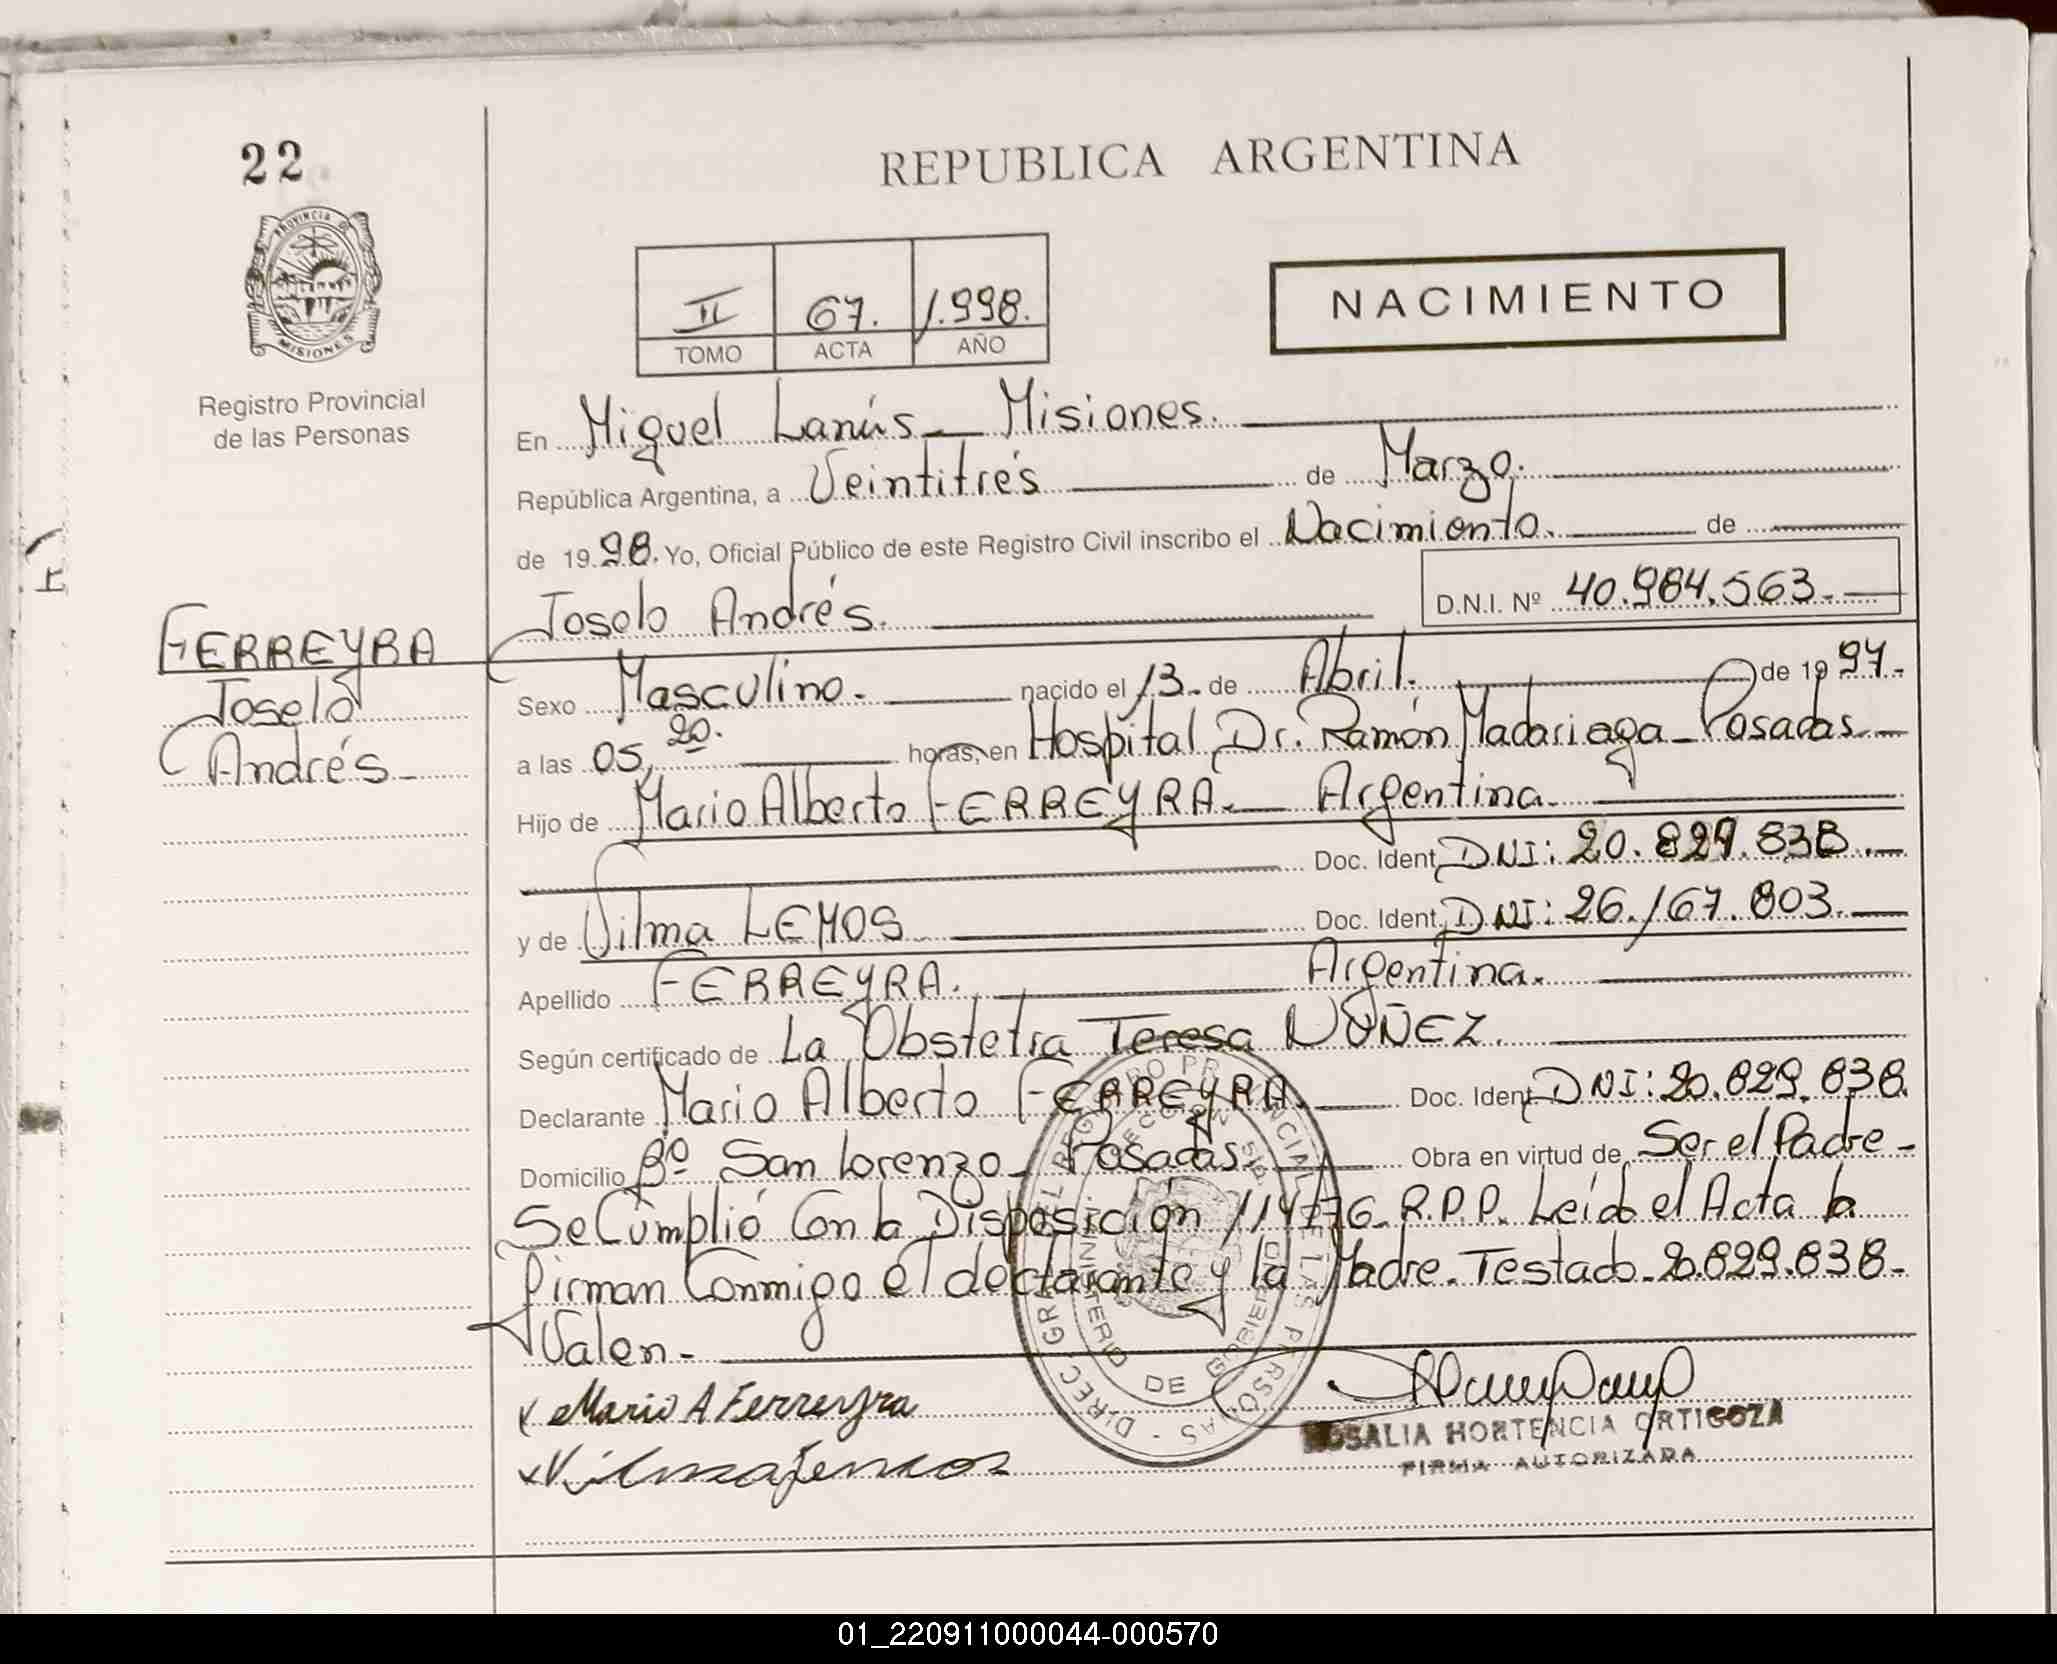 22
REPUBLICA ARGENTINA
PROVINCIA DE
MISIONES
Registro Provincial
de las Personas
II 67. 1.998.
TOMO ACTA AÑO
NACIMIENTO
En Miguel Lanús - Misiones.
República Argentina, a Veintitrés de Marzo.
de 19 98. Yo, Oficial Público de este Registro Civil inscribo el Nacimiento. de
Joselo Andrés. D.N.I. Nº 40.984.563.-
FERREYRA
Joselo
Andrés-
Sexo Masculino. nacido el 13. de Abril. de 19 97.-
a las 05, 20. horas, en Hospital Dr. Ramón Madariaga - Posadas-
Hijo de Mario Alberto FERREYRA. Argentina.
Doc. Ident. DNI: 20.829.838.-
y de Vilma LEMOS Doc. Ident. DNI: 26.167.803.-
Apellido FERREYRA. Argentina.
Según certificado de La Obstetra Teresa NÚÑEZ.
Declarante Mario Alberto FERREYRA. Doc. Ident. DNI: 20.829.838.
Domicilio Bº San Lorenzo - Posadas. Obra en virtud de Ser el Padre -
Se Cumplió Con la Disposición 114/76. R.P.P. Leída el Acta la
firman Conmigo el declarante y la Madre. Testado - 20.829.838.-
Valen -
x Mario A Ferreyra
x Vilma Lemos
DIREC. GRAL. REGISTRO PROVINCIAL DE LAS PERSONAS -
MINISTERIO DE GOBIERNO
ROSALIA HORTENCIA ORTIGOZA
FIRMA AUTORIZADA
01_220911000044-000570